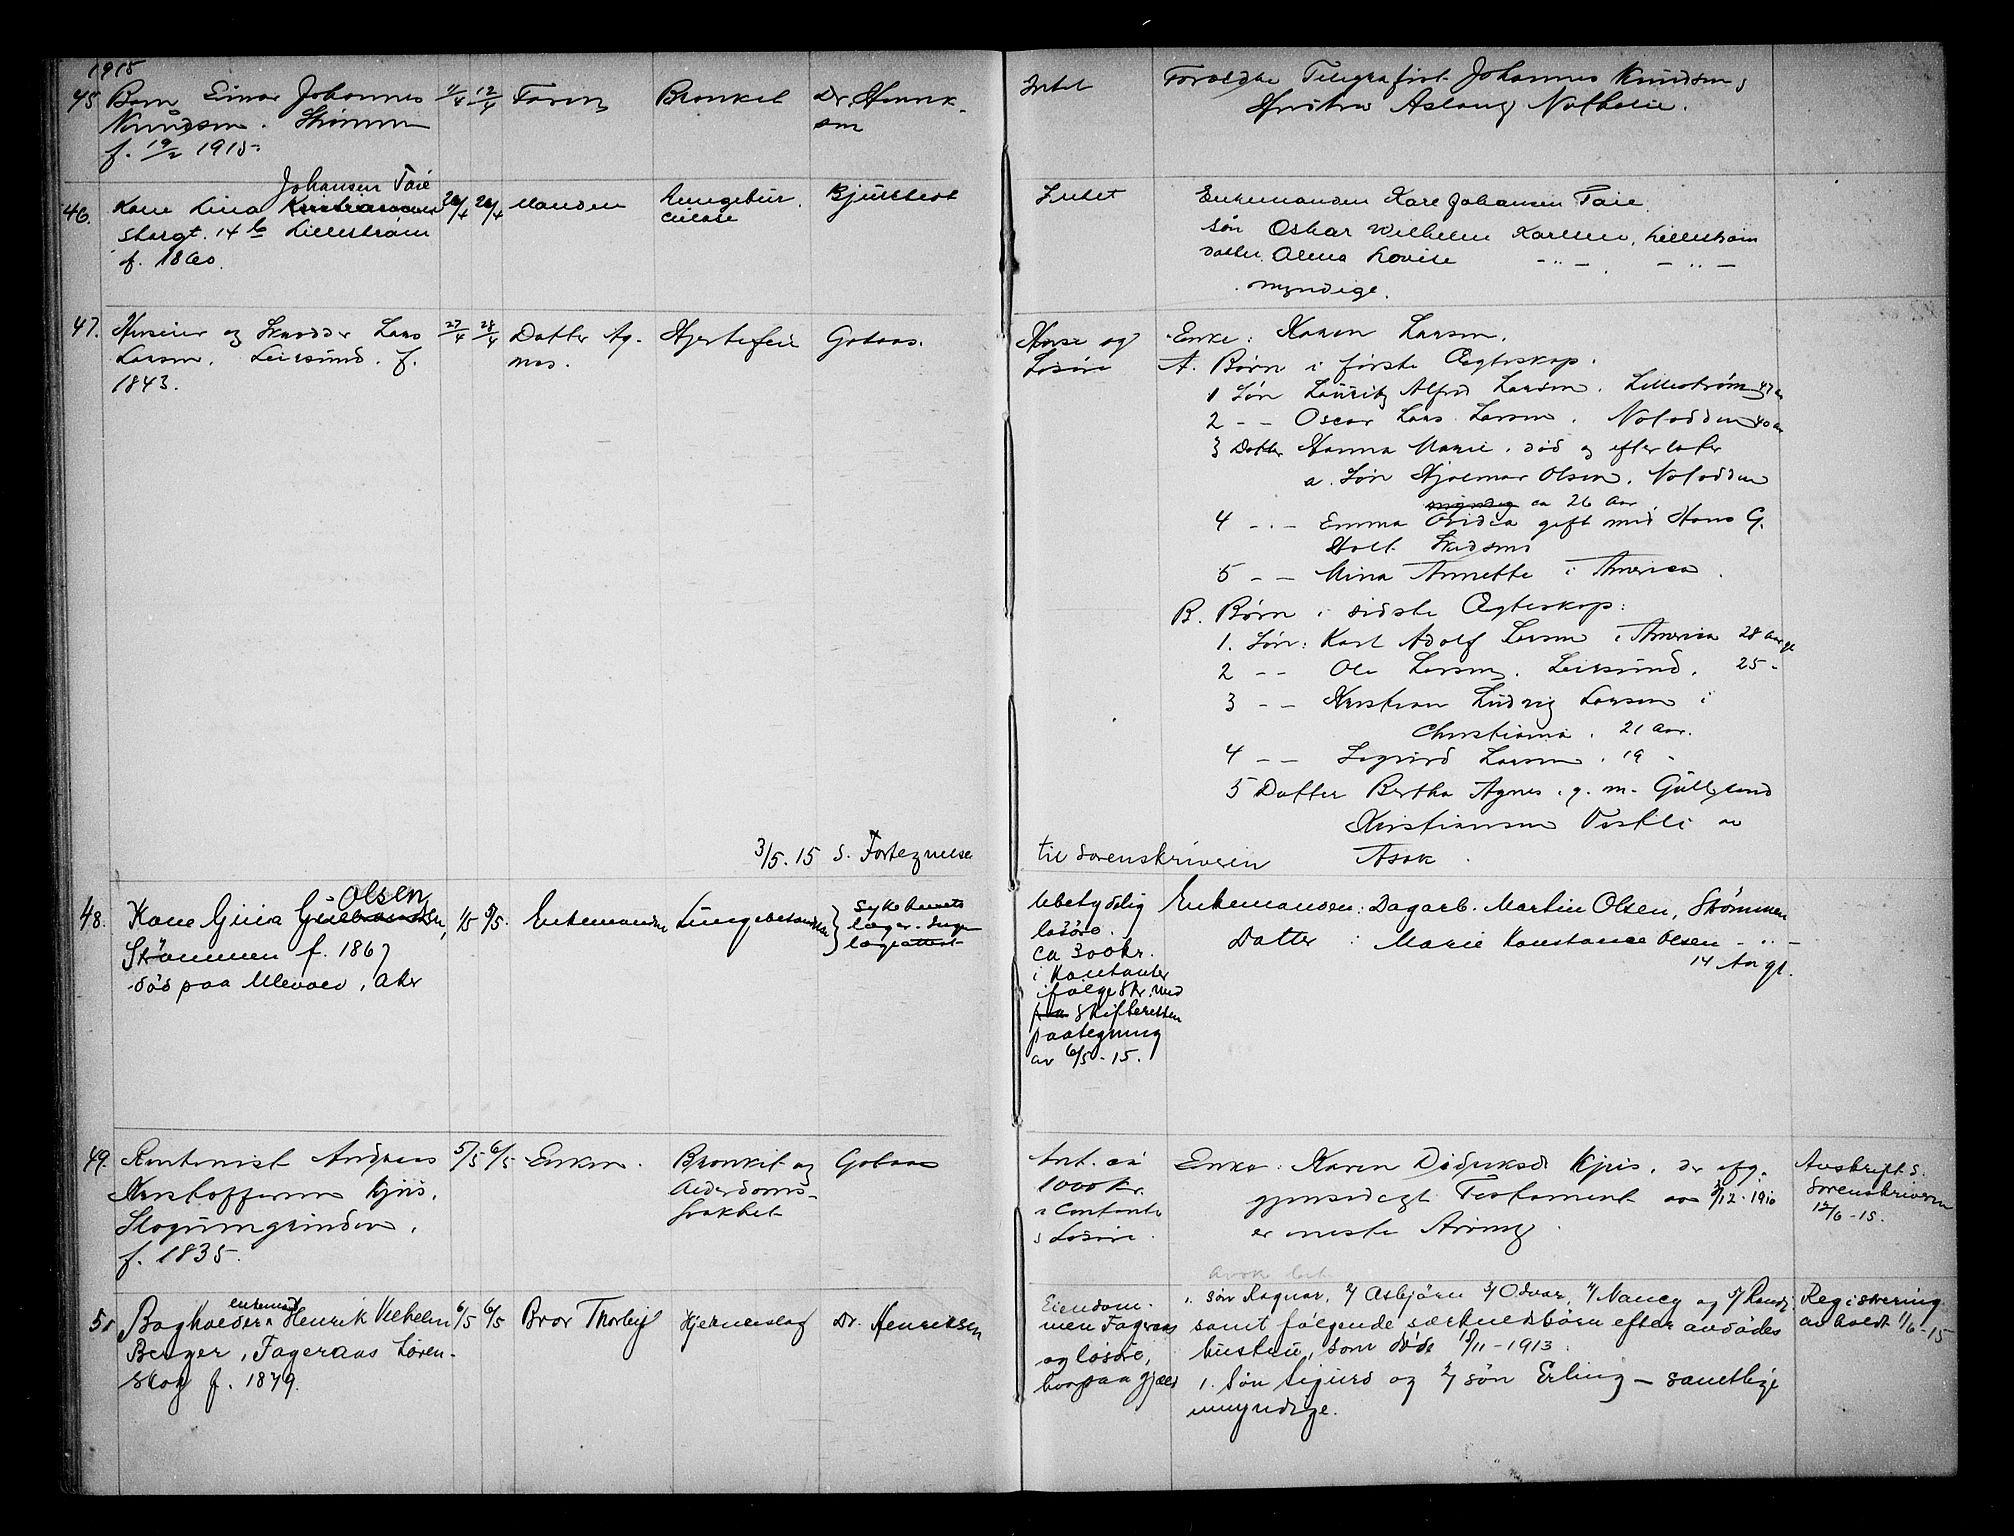 1915
45 Barn Einar Johannes 11/4 12/4 Faren Bronkit Dr. Henrik- Intet Forældre Telegrafist Johannes Knudsen og
Knudsen. Strømmen sen Hustru Aslaug Nathalie.
f. 19/2 1915.
Johansen Faie
46. Kone Lina Kristiansen 26/4 26/4 Manden Bjulstad Intet Enkemanden Karl Johansen Faie
Storgt. 14 b Lillestrøm Søn Oskar Wilhelm Karlsen, Lillestrøm
f. 1860. Datter Alma Lovise - " - - " -
myndige.
47. Husmand og Skrædder Lars 27/4 28/4 Datter Ag- Hjertefeil Gotaas. Huse og Enke: Karen Larsen.
Larsen, Leirsund. f. nes. Løsøre A. Børn i første Ægteskap.
1843. 1 Søn Lauritz Alfred Larsen. Lillestrøm 47 a
2 - - Oscar Lars Larsen. Notodden 40 a
3 Datter Hanna Marie. død og efterlater
a. Søn Hjalmar Olsen. Notodden
ca 26 Aar
4 - - Emma Ovidia gift med Hans G.
Holt Skedsmo
5 - - Mina Annette i America.
B. Børn i sidste Ægteskap:
1. Søn: Karl Adolf Larsen i America 28 Aar gl
2 - - Ole Larsen. Leirsund. 25 -
3 - - Kristian Ludvig Larsen i
Christiania. 21 Aar.
4 - - Sigurd Larsen. 19 -
5 Datter Bertha Agnes. g. m. Gulbrand
Kristiansen Vestli av
3/5. 15 S. Fortegnelse til Sorenskriveren Ask.
Olsen
48. Kone Gina Gulbrandsen, 1/5 5/5. Enkemanden Lungebetændelse } Sykehusets Ubetydelig Enkemanden: Dagarb. Martin Olsen, Strømmen
Strømmen f. 1867 læger. Ingen løsøre. Datter: Marie Konstance Olsen - " -
død paa Ullevaal, Aker lægeattest ca 300 kr. 14 Aar gl.
i Kontanter
ifølge skr. med
fra Skifteretten
paategning
av 6/5 - 15.
49. Rentenist Andreas 5/5 6/5 Enken. Bronkit og Gotaas Ant. ca Enke: Karen Didriksd. Kjus, der efg. Avskrift s.
Kristoffersen Kjus, Alderdoms- 1000 Kr. gjensidigt Testament av 2/12 - 1910 Sorenskriveren
Skogumgrinden. svakhet i Contanter er eneste Arving. 12/6 - 15.
f. 1835. & Løsøre.
enkemand
50 Bogholder Henrik Vilhelm 6/5 6/5 Bror Thorleif Hjerneslag Dr. Henriksen Eiendom- 1. søn Ragnar, 2/ Asbjørn 3/ Odvar, 4/ Nancy og 5/ Randi Registrering
Berger, Fageraas Løren- men Fageraas samt følgende særkuldbørn efter avdødes avholdt 1/6 - 15
skog f. 1879. og løsøre, hustru, som døde 15/11 - 1913.
hvorpaa gjæld 1. Søn Sigurd og 2/ søn Erling - samtlige
umyndige.